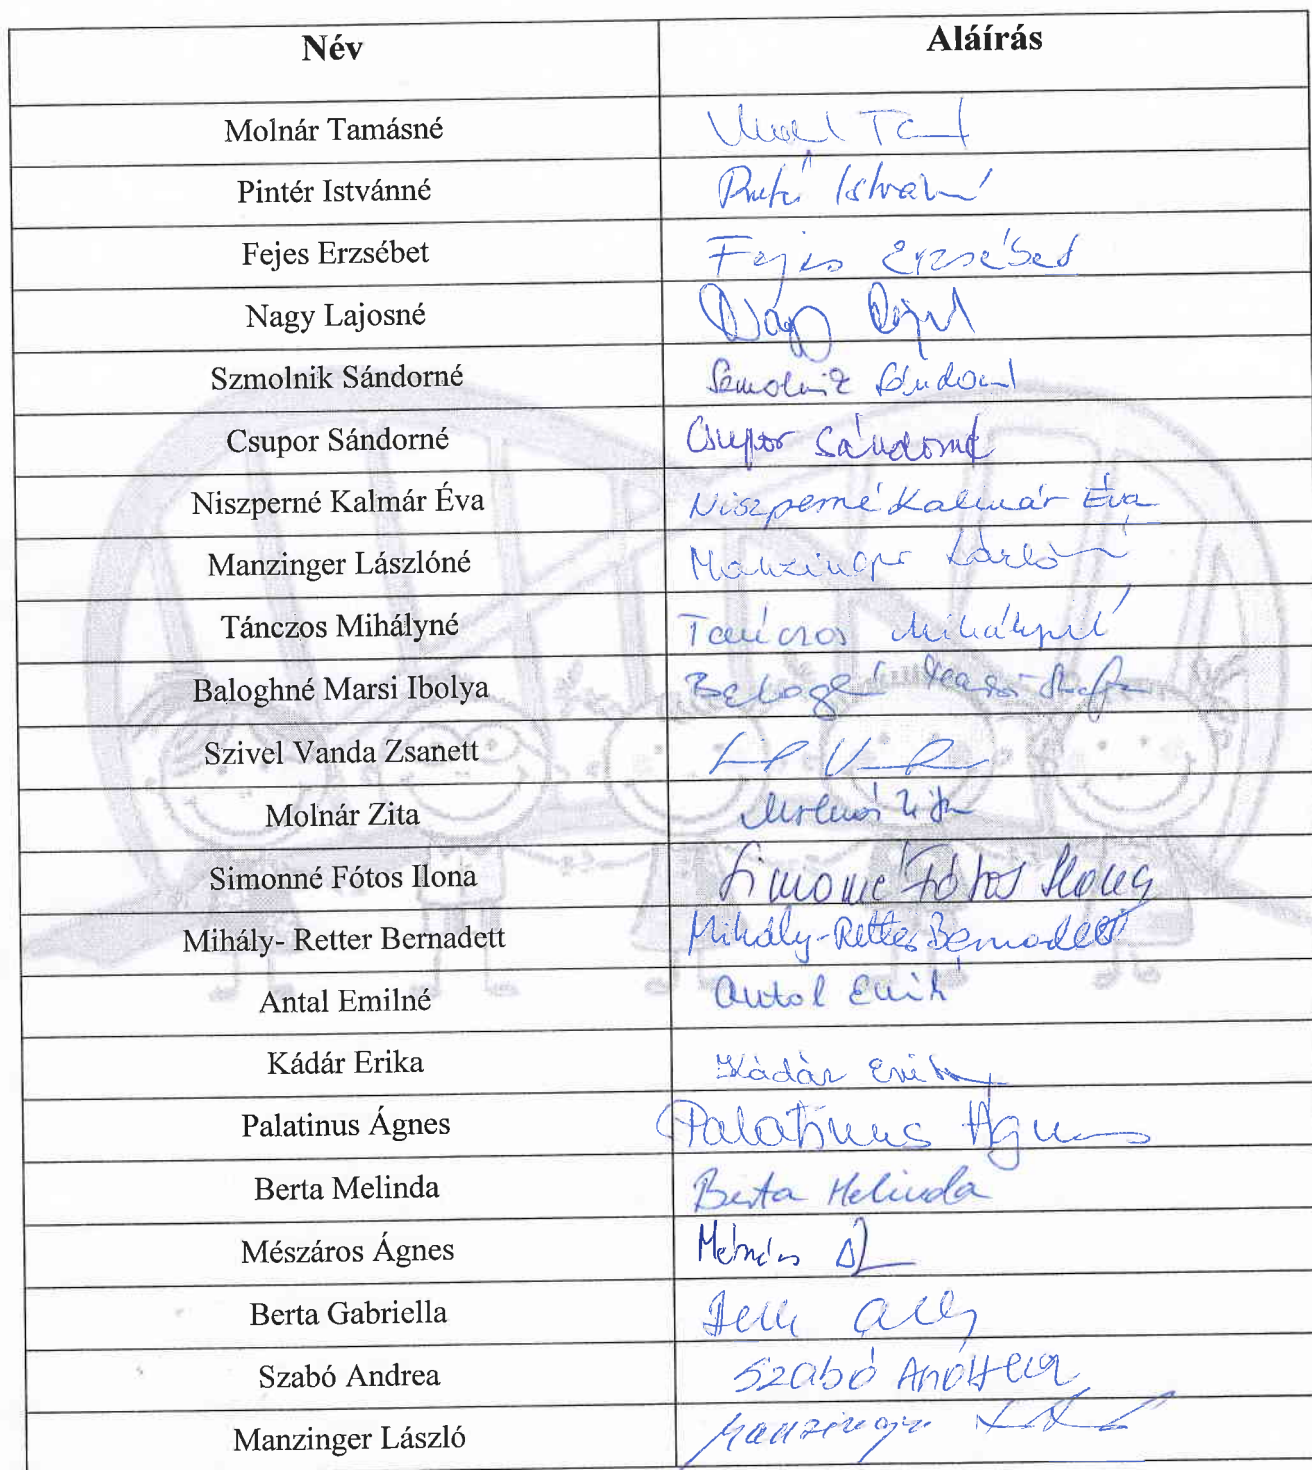 Név Aláírás
Molnár Tamásné
Pintér Istvánné
Fejes Erzsébet Fejes Erzsébet
Nagy Lajosné Nagy
Szmolnik Sándorné Szmolnik
Csupor Sándorné Csupor Sándorné
Niszperné Kalmár Éva Niszperné Kalmár Éva
Manzinger Lászlóné Manzinger
Tánczos Mihályné Tánczos Mihályné
Baloghné Marsi Ibolya
Szivel Vanda Zsanett
Molnár Zita Molnár Zita
Simonné Fótos Ilona Simonné Fótos Ilona
Mihály- Retter Bernadett Mihály-Retter Bernadett
Antal Emilné Antal
Kádár Erika Kádár Erika
Palatinus Ágnes Palatinus Ágnes
Berta Melinda Berta Melinda
Mészáros Ágnes
Berta Gabriella
Szabó Andrea Szabó Andrea
Manzinger László Manzinger